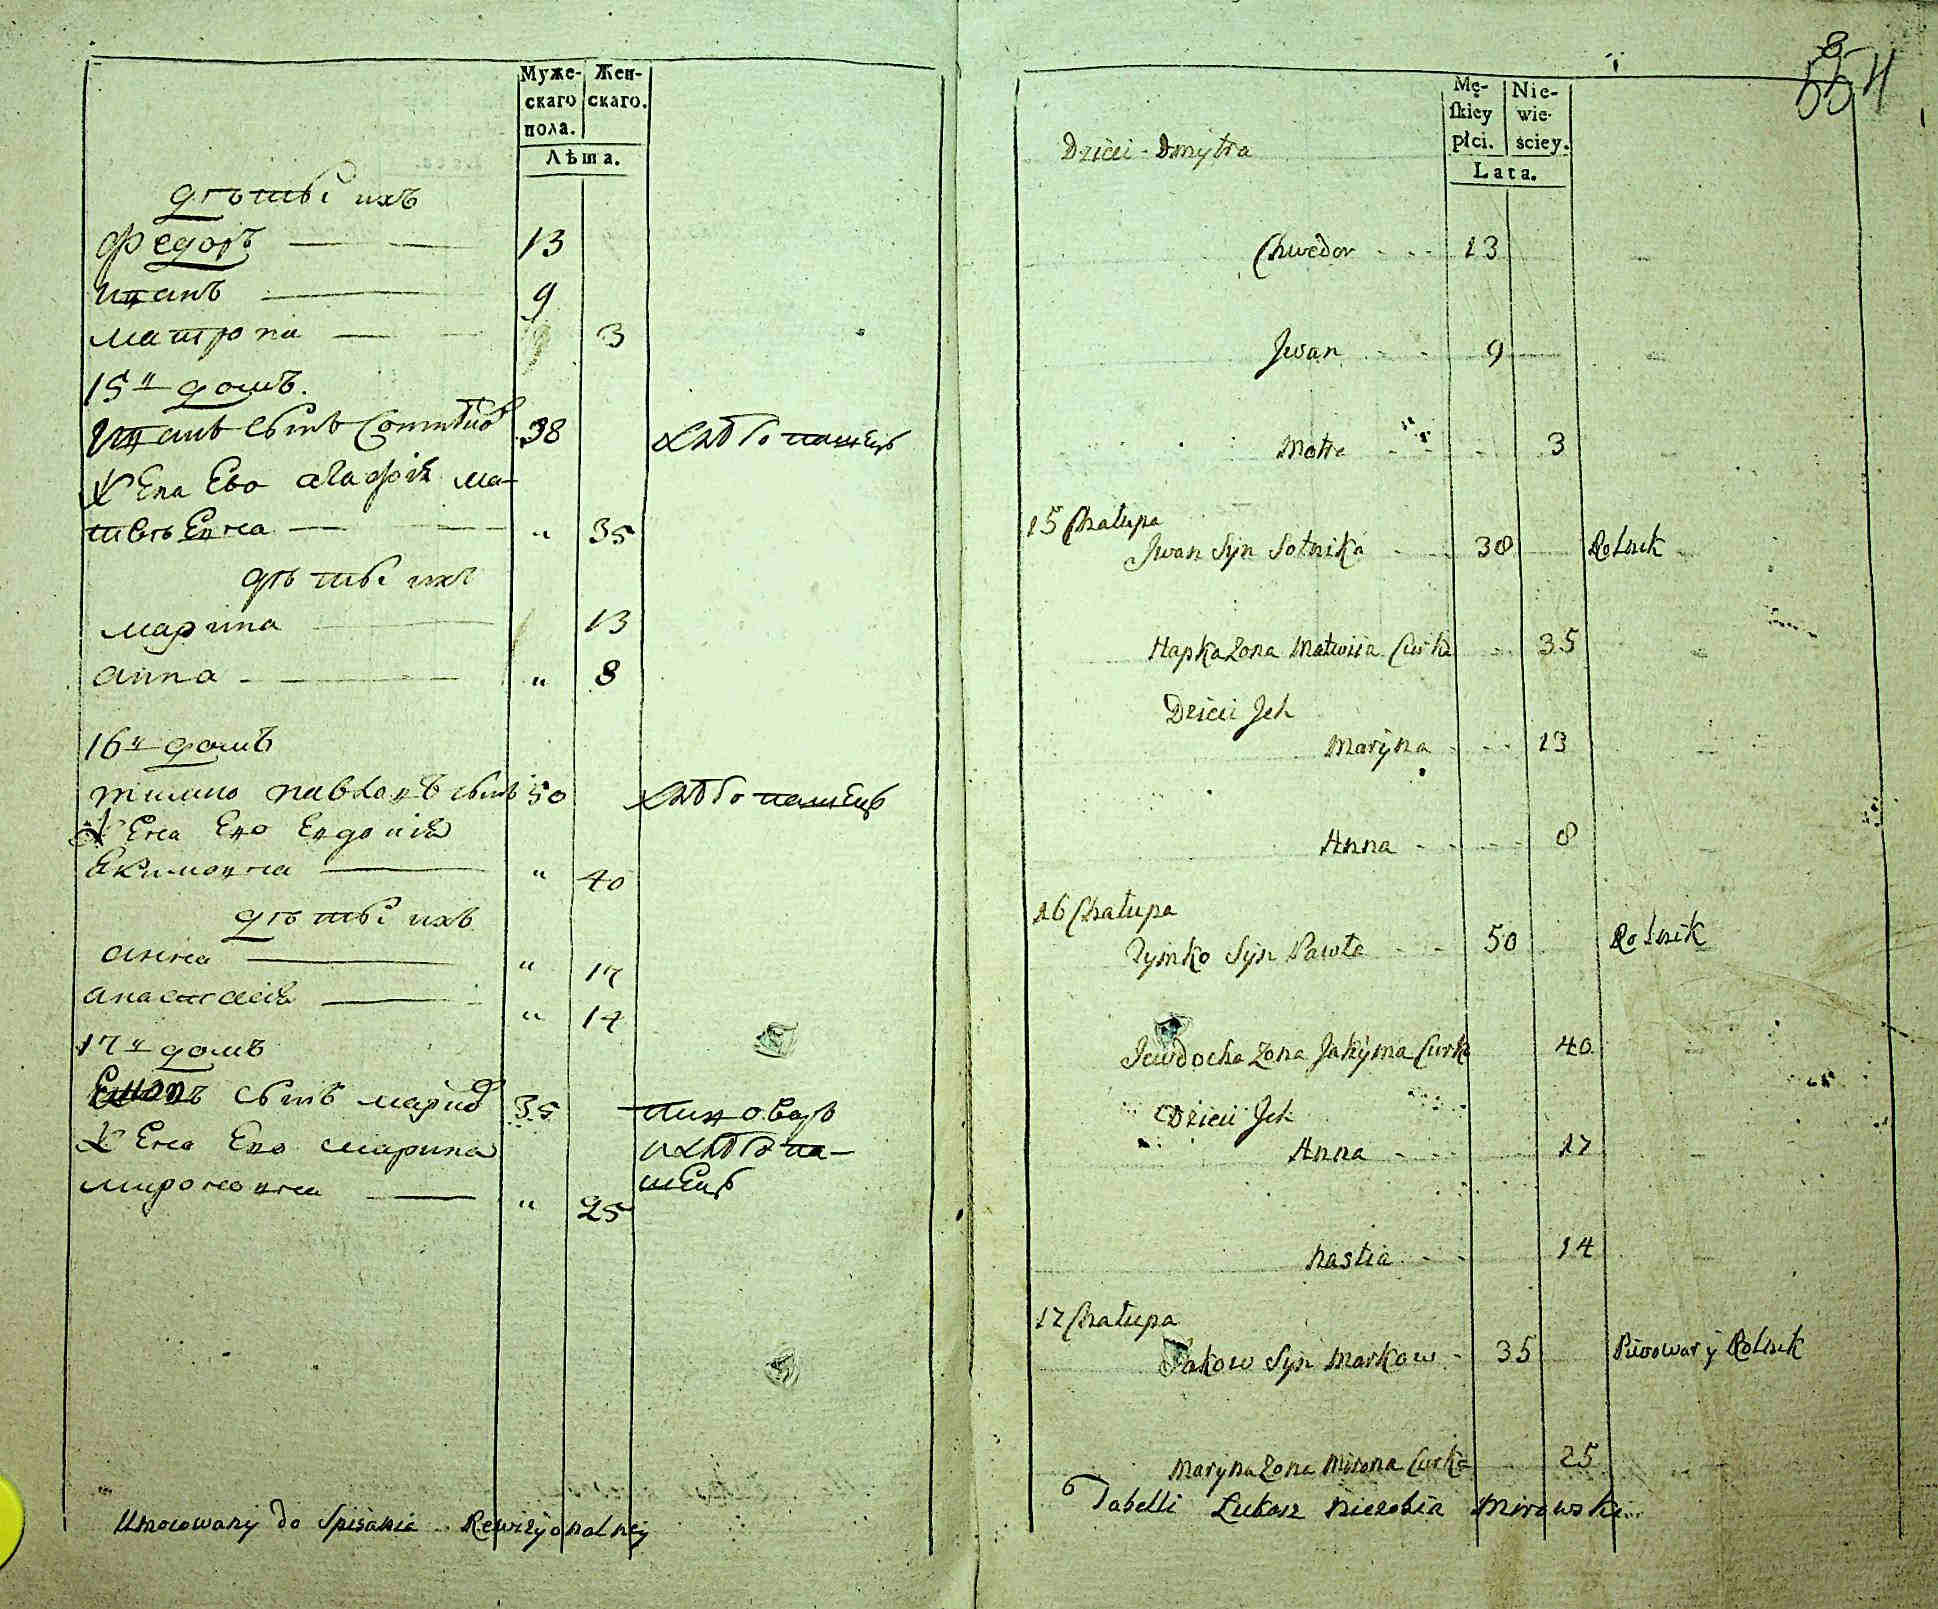 Муже-
скаго
пола.
Жен-
скаго.
Лѣта.
дѣти ихъ
Федоръ 13
Иванъ 9
Матрона 3
15й домъ.
Иванъ сынъ 38 хлебопашецъ
жена Ево Агафия Ма-
твѣевна " 35
дѣти ихъ
Марина 13
Анна " 8
16й домъ
Тимко Павловъ сынъ 50 хлебопашецъ
жена Ево Евдокия
Екимовна " 40
дѣти ихъ
Анна " 17
Анастасия " 14
17й домъ
сынъ 35 пивоваръ
жена Ево Марина и хлебопа-
Мироновна " 25 шецъ
Umocowany do Spisania Rewizyonalney
8
554
Mę-
skiey
płci.
Nie-
wie-
ściey.
Lata.
Dzieci Dmytra
Chwedor 13
Jwan 9
Motre 3
15 Chałupa
Jwan Syn Sotnika 38 Rolnik
Hapka Zona Matwiia Curka 35
Dzieci Jch
Maryna 13
Anna 8
16 Chałupa
Tymko Syn Pawła 50 Rolnik
Jewdocha Zona Jakyma Curka 40
Dzieci Jch
Anna 17
Nastia 14
17 Chałupa
Jakow Syn Markow 35 Piwowar y Rolnik
Maryna Zona Mirona Curka 25
Tabelli Łukasz Mirowski